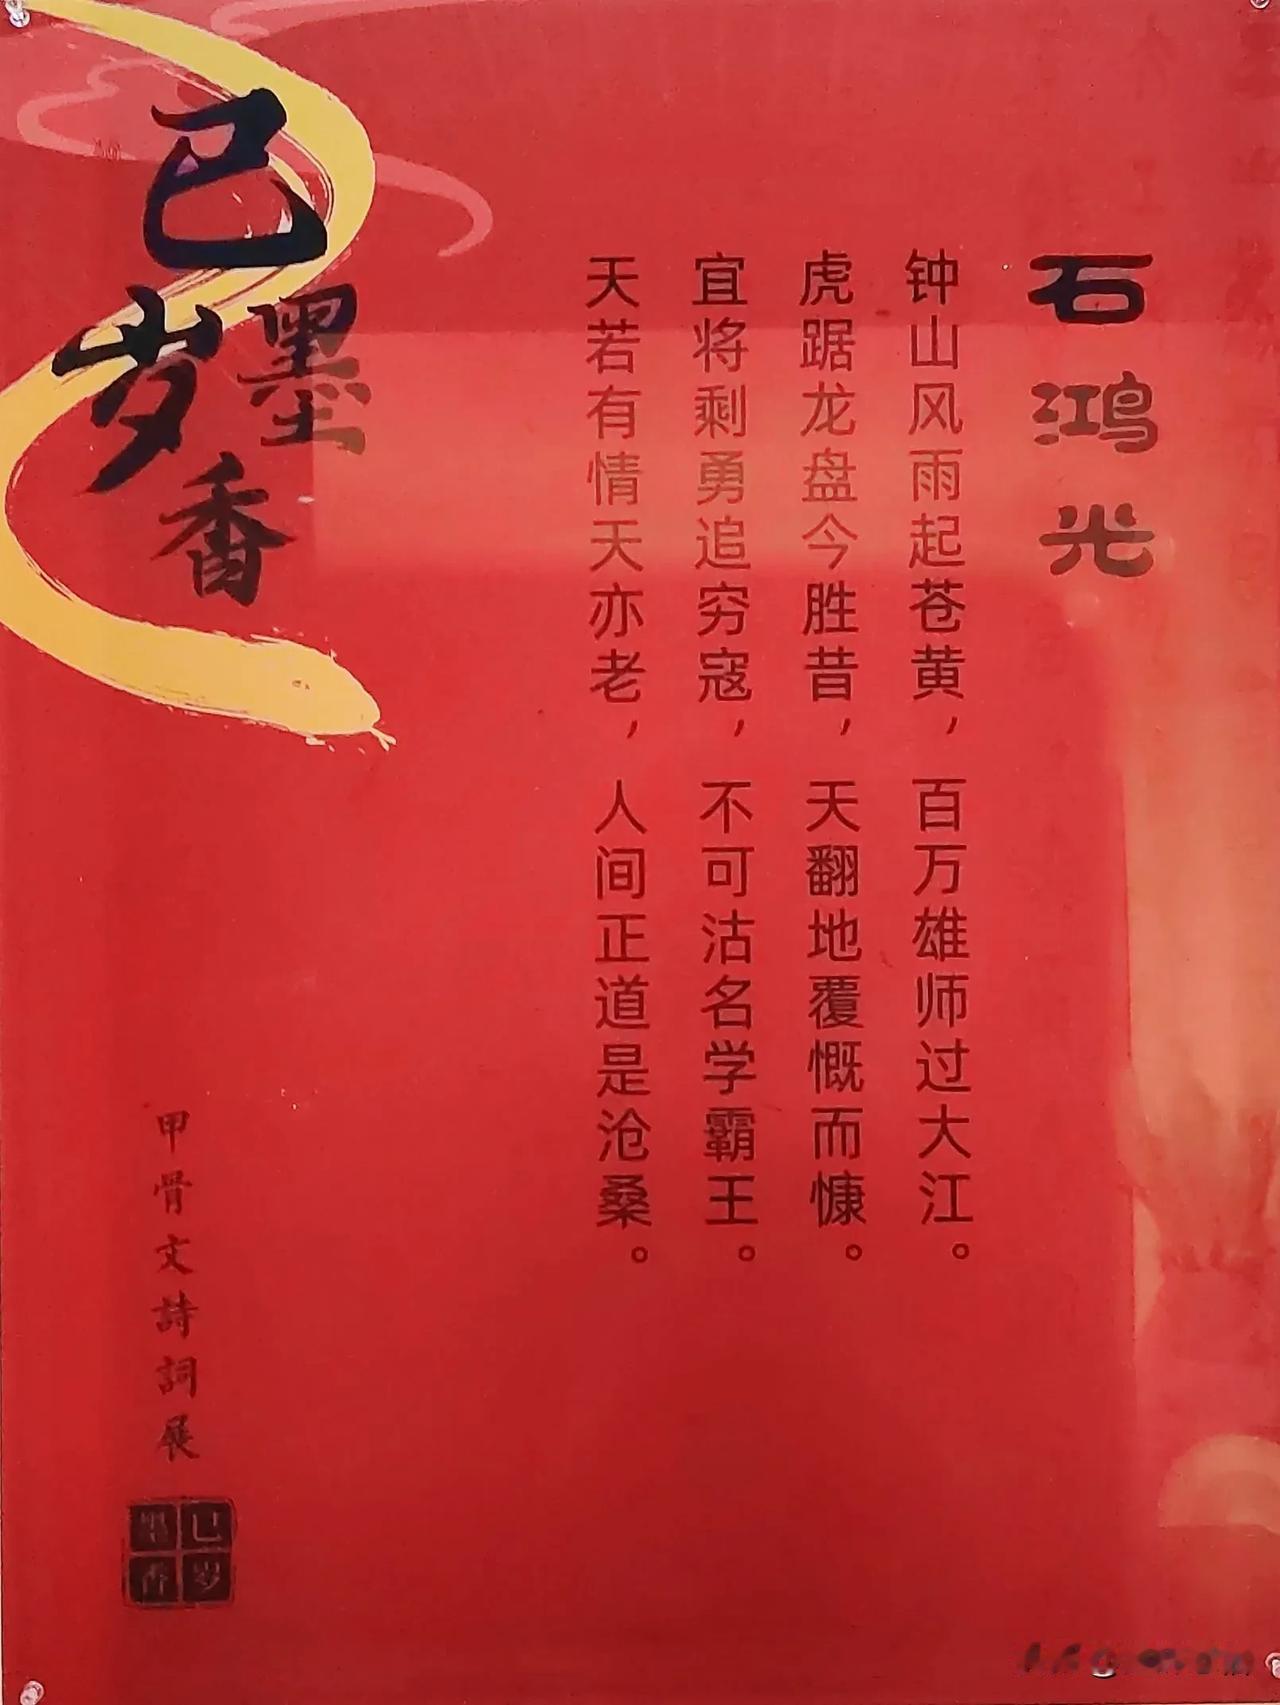 石鸿光
钟山风雨起苍黄，百万雄师过大江。
虎踞龙盘今胜昔，天翻地覆慨而慷。
宜将剩勇追穷寇，不可沽名学霸王。
天若有情天亦老，人间正道是沧桑。
巳岁墨香
甲骨文詩詞展
巳岁墨香